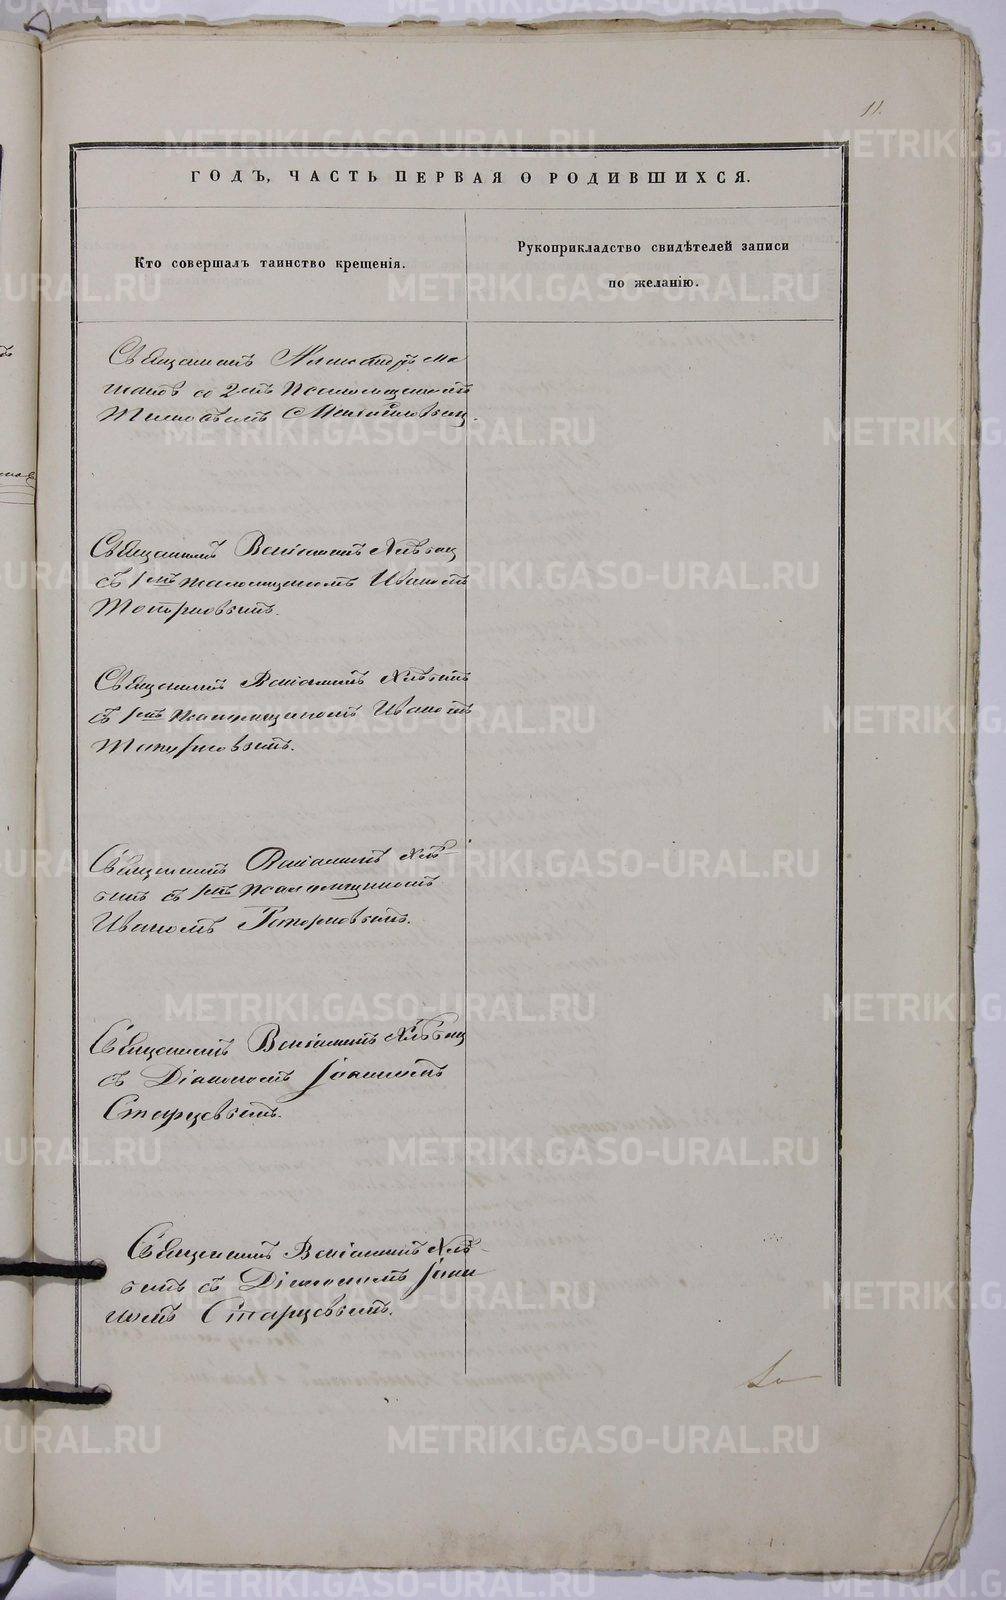 11.
ГОДЪ, ЧАСТЬ ПЕРВАЯ О РОДИВШИХСЯ.
Кто совершалъ таинство крещенія.
Рукоприкладство свидѣтелей записи
по желанію.
Священникъ Александръ
со 2мъ Псаломщикомъ
Михайловскимъ
Священникъ Веніаминъ Хлѣбинъ
съ 1мъ псаломщикомъ Иваномъ
Топорковымъ.
Священникъ Веніаминъ Хлѣбинъ
съ 1мъ псаломщикомъ Иваномъ
Топорковымъ.
Священникъ Веніаминъ Хлѣ-
бинъ съ 1мъ псаломщикомъ
Иваномъ Топорковымъ.
Священникъ Веніаминъ Хлѣбинъ
съ Діакономъ Іоанномъ
Старцевымъ.
Священникъ Веніаминъ Хлѣ-
бинъ съ Діакономъ Іоан
номъ Старцевымъ.
METRIKI.GASO-URAL.RU